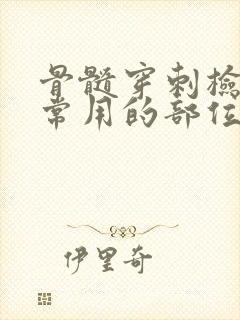 骨髓穿刺检
常用的部位
伊里奇